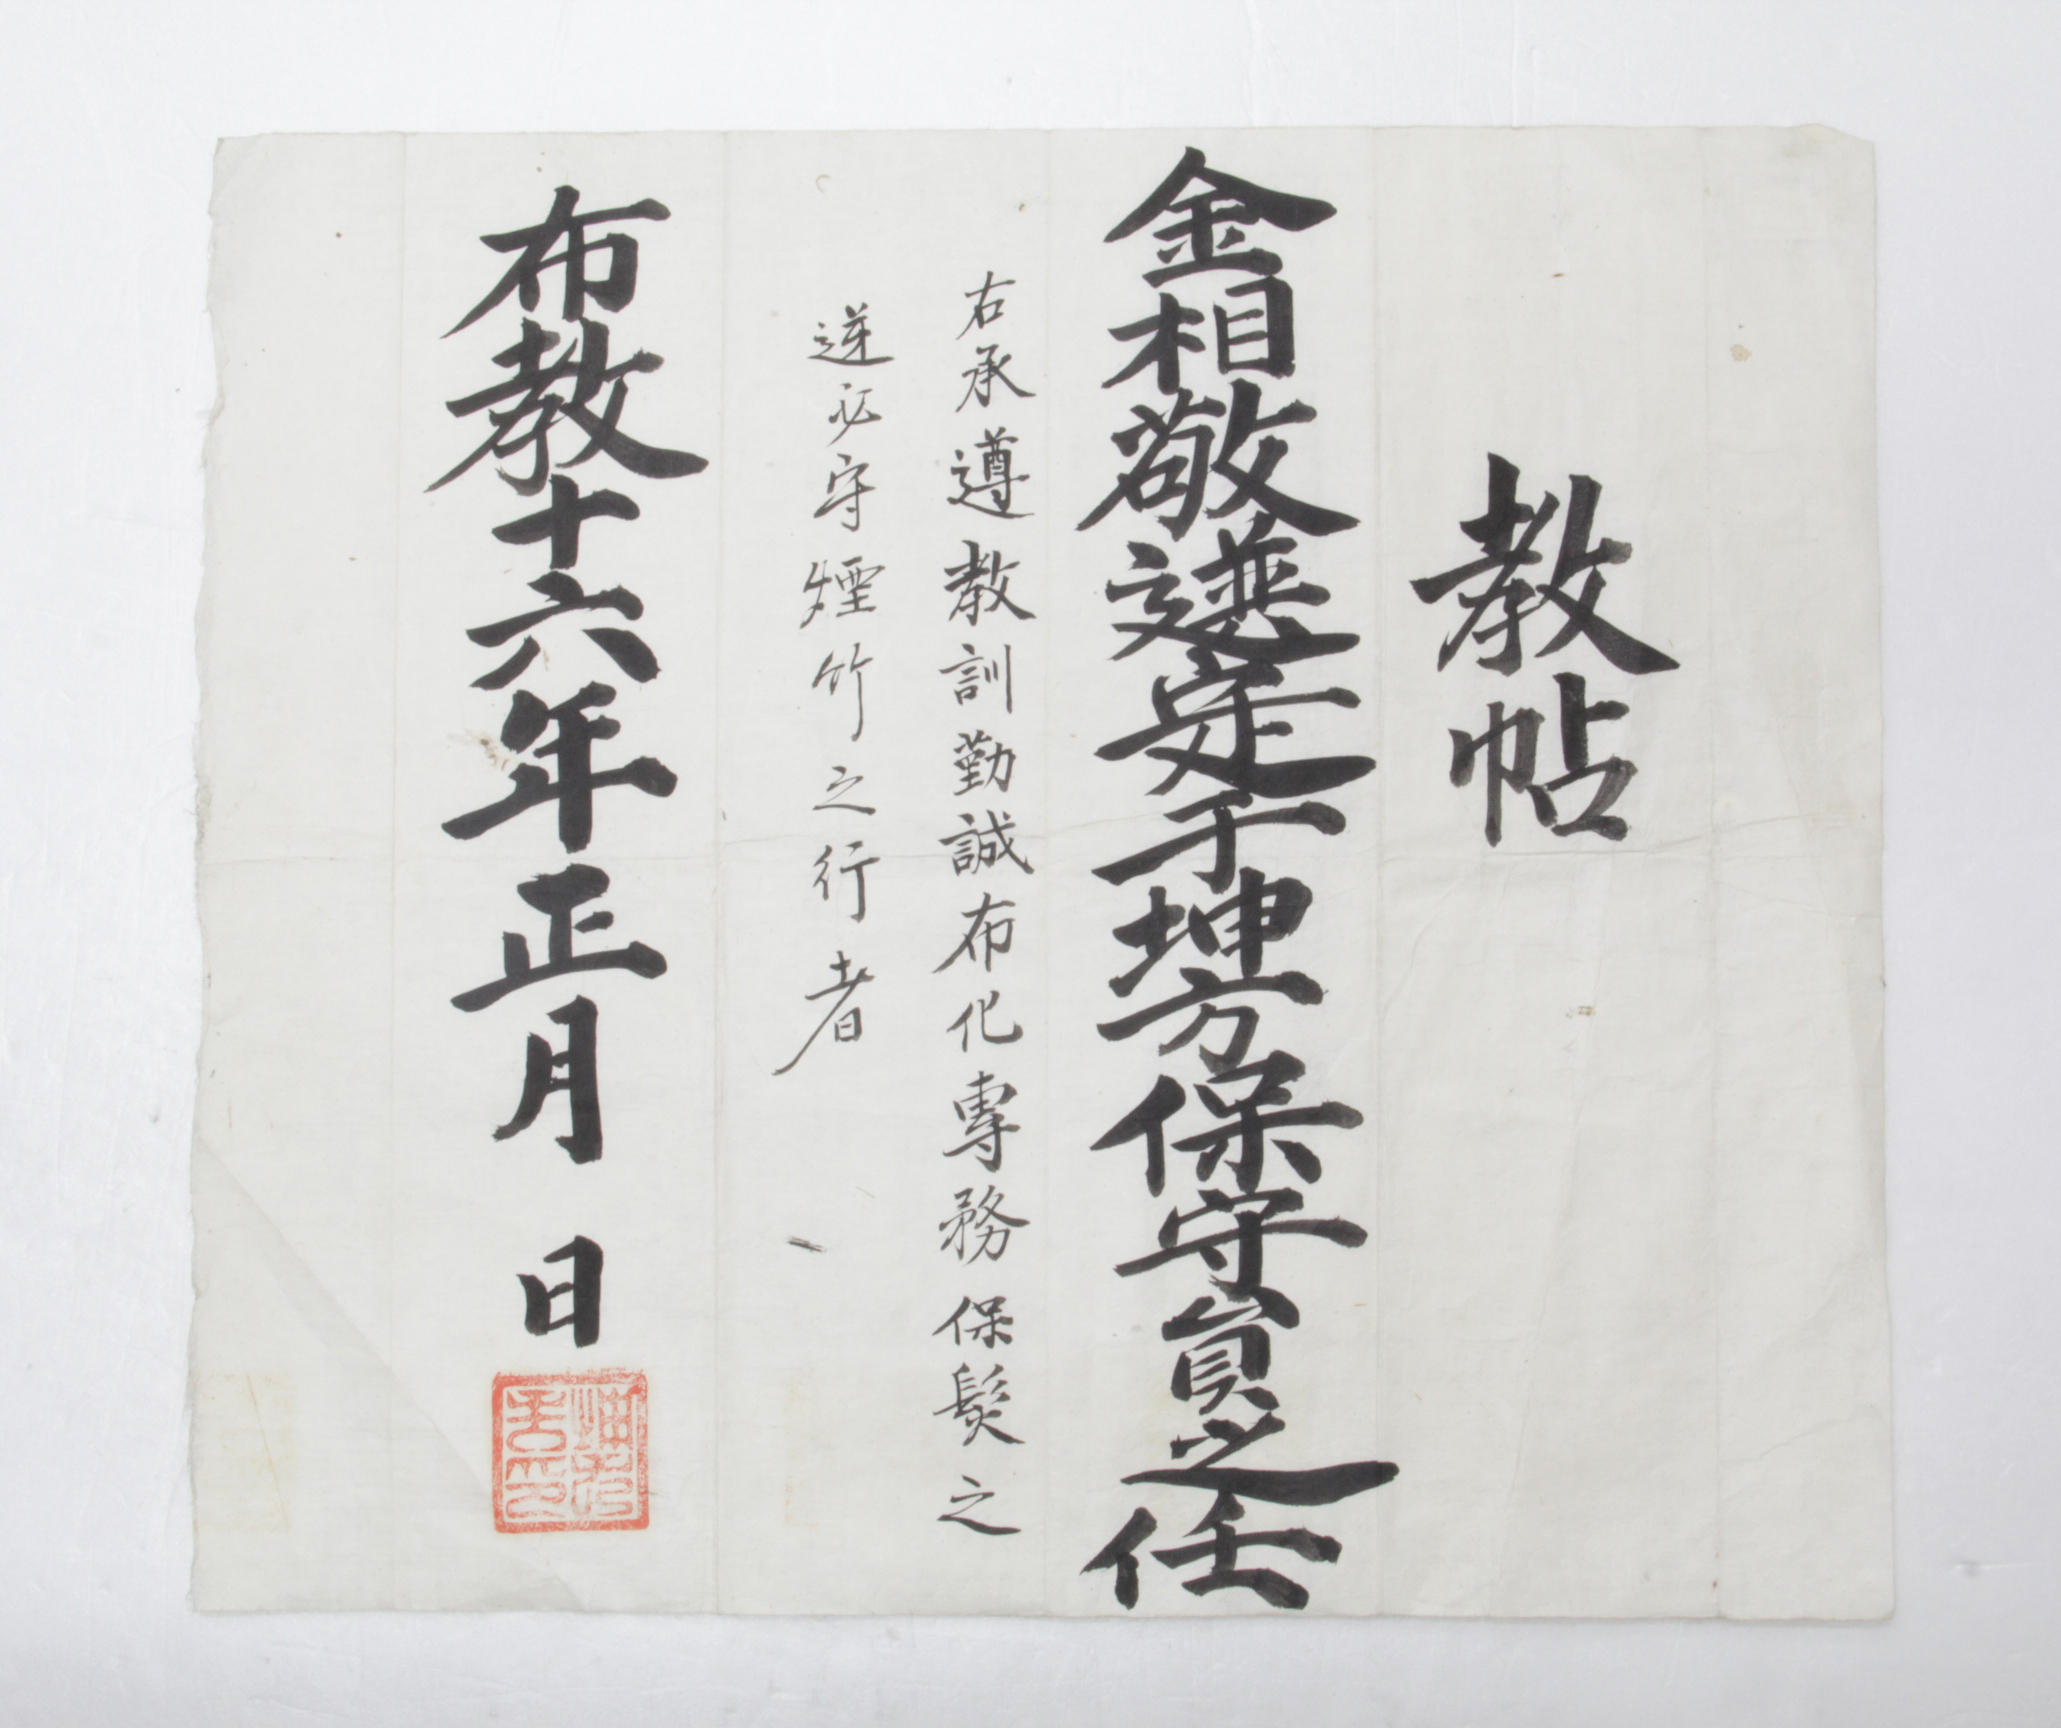 教帖
金相敬選定于坤方保守員之任
右承遵教訓勤誠布化專務保髮之
道必守煙竹之行者
布教十六年正月 日